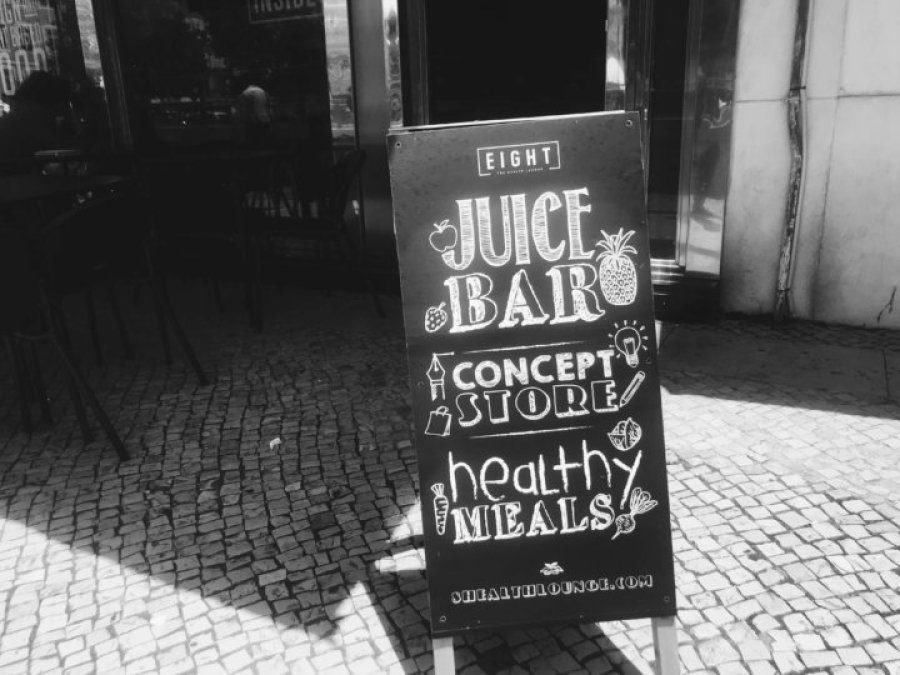 INSIDE
EIGHT
THE HEALTH LOUNGE
JUICE
BAR
CONCEPT
STORE
healthy
MEALS
8HEALTHLOUNGE.COM